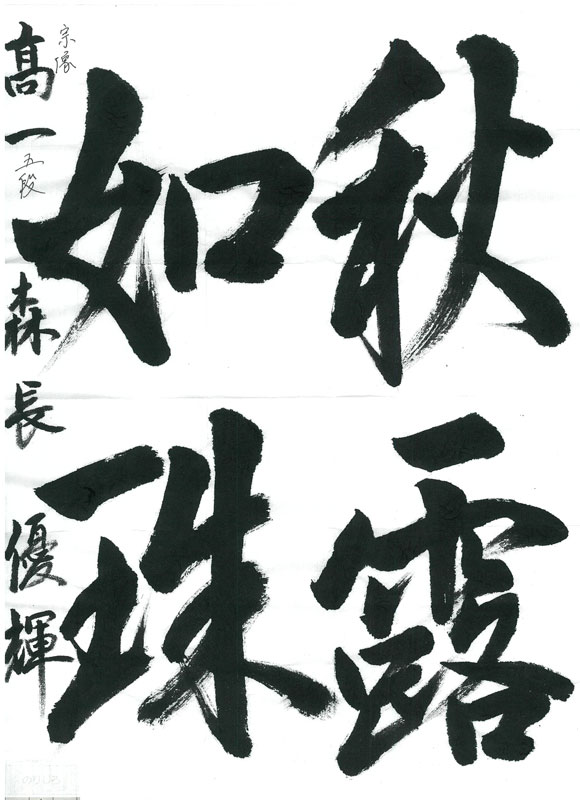 秋露
如珠
高一 森長優輝
宗像
五段